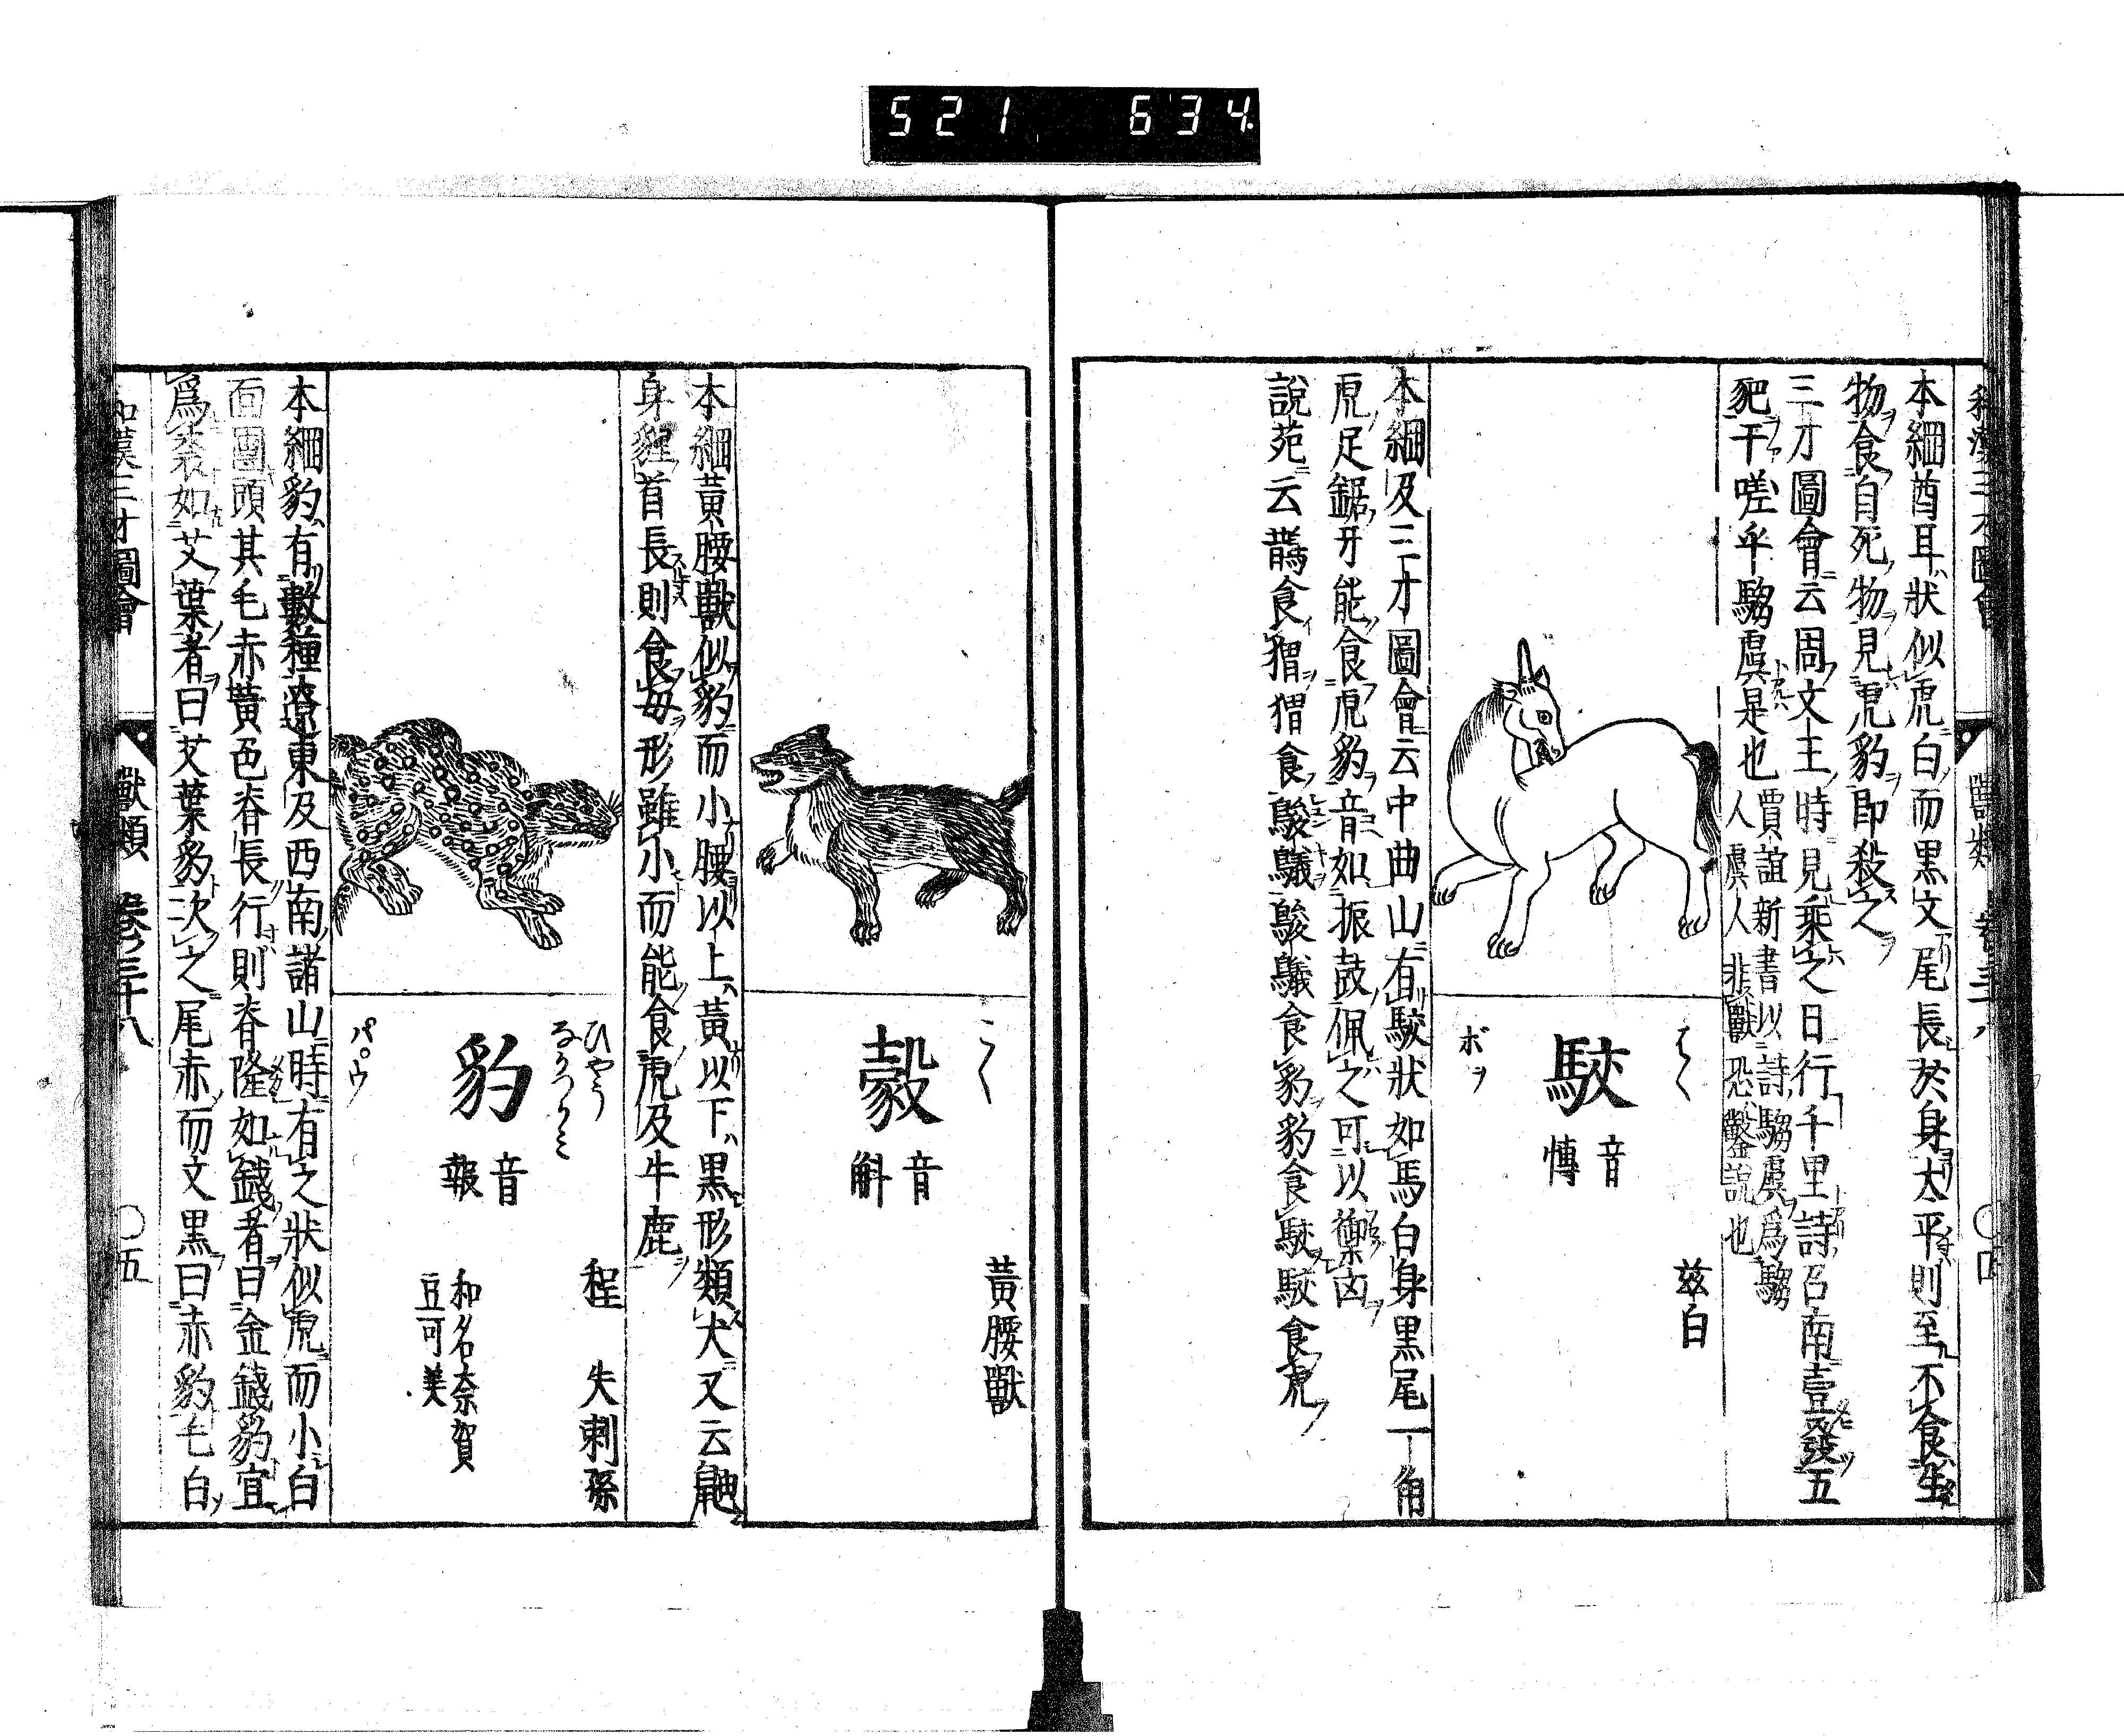 521 634
和漢三才圖會 獸類 卷三十八 〇四
本綱酋耳狀似虎白而黒文尾長於身太平則至不食生
物食自死物見虎豹即殺之
三才圖會云周文王時見乘之日行千里詩召南壹發五
豝于嗟乎騶虞是也
賈誼新書以詩騶虞爲騶
人虞人非獸恐鑿說也
はく
駮
音
博
ボヲ
茲白
本綱及三才圖會云中曲山有駮狀如馬白身黒尾一角
虎足鋸牙能食虎豹音如振鼓佩之可以禦凶
說苑云鵲食猬猬食鵔鸃鵔鸃食豹豹食駮駮食虎
こく
豰
音
斛
黃腰獸
本綱黃腰獸似豹而小腰以上黃以下黒形類犬又云鼬
身貍首長則食母形雖小而能食虎及牛鹿
ひやう
なかつかみ
豹
音
報
パ゚ウ
程 失刺孫
和名奈賀
豆可美
本綱豹有數種遼東及西南諸山時有之狀似虎而小白
面團頭其毛赤黃色脊長行則脊隆如錢者曰金錢豹宜
爲裘如艾葉者曰艾葉豹次之尾赤而文黒曰赤豹毛白
和漢三才圖會 獸類 卷三十八 〇五